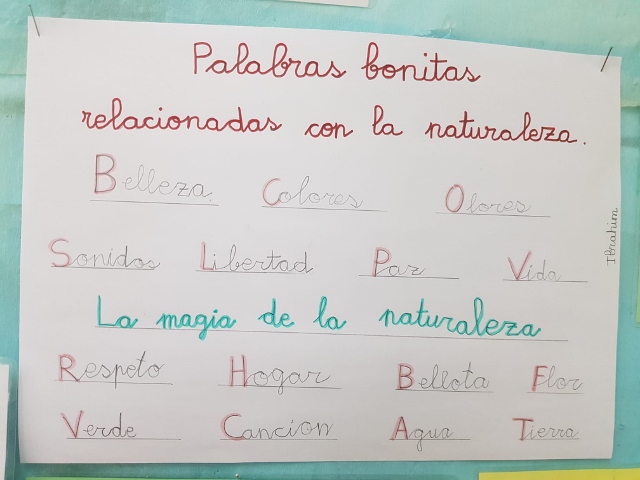 Palabras bonitas
relacionadas con la naturaleza.
Belleza. Colores Olores
Sonidos Libertad Paz Vida
La magia de la naturaleza
Respeto Hogar Bellota Flor
Verde Cancion Agua Tierra
IBrahim